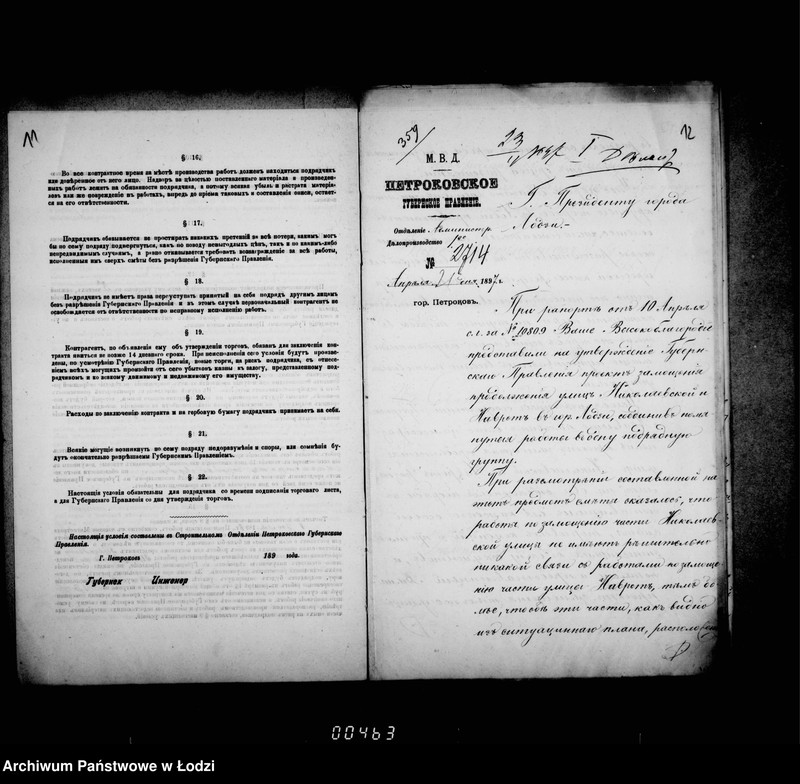 11
§ 16.
Во все контрактное время на мѣстѣ производства работъ долженъ находиться подрядчикъ
или довѣренное отъ него лицо. Надзоръ за цѣлостью поставленнаго матеріала и произведен-
ныхъ работъ лежитъ на обязанности подрядчика, а потому всякая убыль и растрата матеріа-
ловъ или же поврежденіе въ работахъ, впредь до пріема таковыхъ и составленія описи, остает-
ся на его отвѣтственности.
§ 17.
Подрядчикъ обязывается не простирать никакихъ претензій на всѣ потери, какимъ мог
бы по сему подряду подвергнуться, какъ по поводу невыгодныхъ цѣнъ, такъ и по какимъ-либо
непредвидимымъ случаямъ, а равно отказывается требовать вознагражденіе за всѣ работы,
исполненныя имъ сверхъ смѣты безъ разрѣшенія Губернскаго Правленія.
§ 18.
Подрядчикъ не имѣетъ права переуступать принятый на себя подрядъ другимъ лицамъ
безъ разрѣшенія Губернскаго Правленія и въ этомъ случаѣ первоначальный контрагентъ не
освобождается отъ отвѣтственности по исправному исполненію работъ.
§ 19.
Контрагентъ, по объявленіи ему объ утвержденіи торговъ, обязанъ для заключенія кон-
тракта явиться не позже 14 дневнаго срока. При неисполненіи сего условія будутъ произве-
дены, по усмотрѣнію Губернскаго Правленія, новые торги, на рискъ подрядчика, съ отнесе-
ніемъ всѣхъ могущихъ произойти отъ сего убытковъ казны къ залогу, представленному под-
рядчикомъ и ко всякому движимому и недвижимому его имуществу.
§ 20.
Расходы по заключенію контракта и на гербовую бумагу подрядчикъ принимаетъ на себя.
§ 21.
Всякіе могущіе возникнуть по сему подряду недоразумѣнія и споры, или сомнѣнія бу-
дутъ окончательно разрѣшаемы Губернскимъ Правленіемъ.
§ 22.
Настоящія условія обязательны для подрядчика со времени подписанія торговаго листа,
а для Губернскаго Правленія со дня утвержденія торговъ.
Настоящія условія составлены въ Строительномъ Отдѣленіи Петроковскаго Губернскаго
Правленія.
Г. Петроковъ 189 года.
Губернск Инженер
359/
12
М. В. Д.
ПЕТРОКОВСКОЕ
ГУБЕРНСКОЕ ПРАВЛЕНІЕ.
Отдѣленіе Администр
Дѣлопроизводство 1ое
№ 2714
Апрѣля 21 дня 1897 г.
гор. Петроковъ.
23
I
Г. Президенту города
Лодзи.
При рапортѣ отъ 10 Апрѣля
с. г. за № 10809 Ваше Высокоблагородіе
представили на утвержденіе Губерн-
скаго Правленія проектъ замощенія
продолженія улицъ Николаевской и
Навротъ въ гор. Лодзи, соединивъ помя
нутыя работы въ одну подрядную
группу.
При разсмотрѣніи составленной на
этотъ предметъ смѣты оказалось, что
работы по замощенію части Николаев-
ской улицы не имѣютъ рѣшительно
никакой связи съ работами по замоще
нію части улицы Навротъ, тѣмъ бо-
лѣе, что обѣ эти части, какъ видно
изъ ситуаціоннаго плана, располо
00463
Archiwum Państwowe w Łodzi